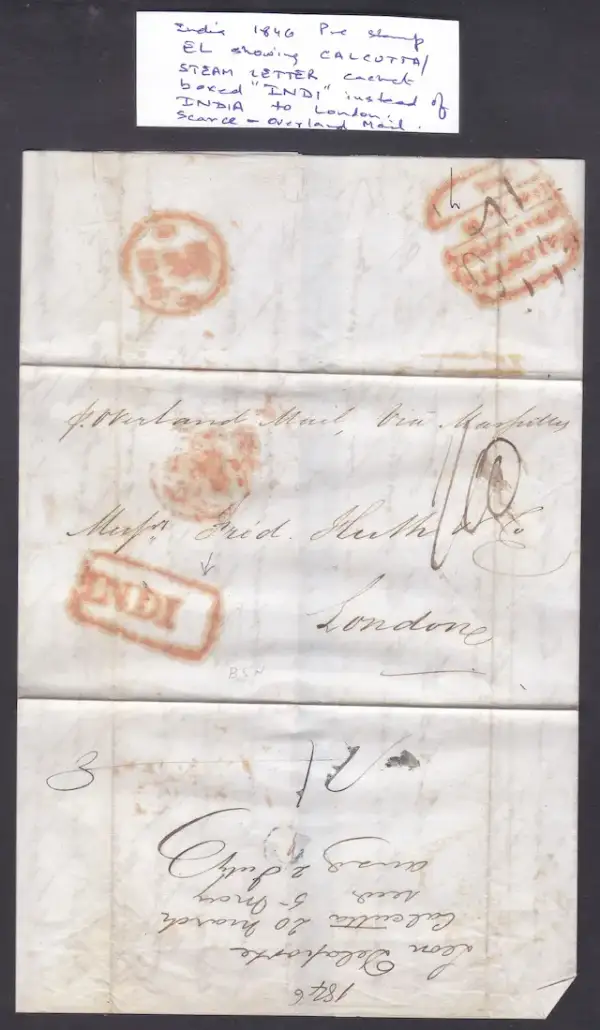 India 1846 Pre stamp
EL showing CALCUTTA/
STEAM LETTER cachet
boxed "INDI" instead of
INDIA to London.
Scarce - Overland Mail.
p. Overland Mail, Via Marseilles
Messrs Fred. Huth & Co
INDI
London
BSN
1846
Leon Delaporte
Calcutta 20 March
recd. 5 May
ansd 2 July